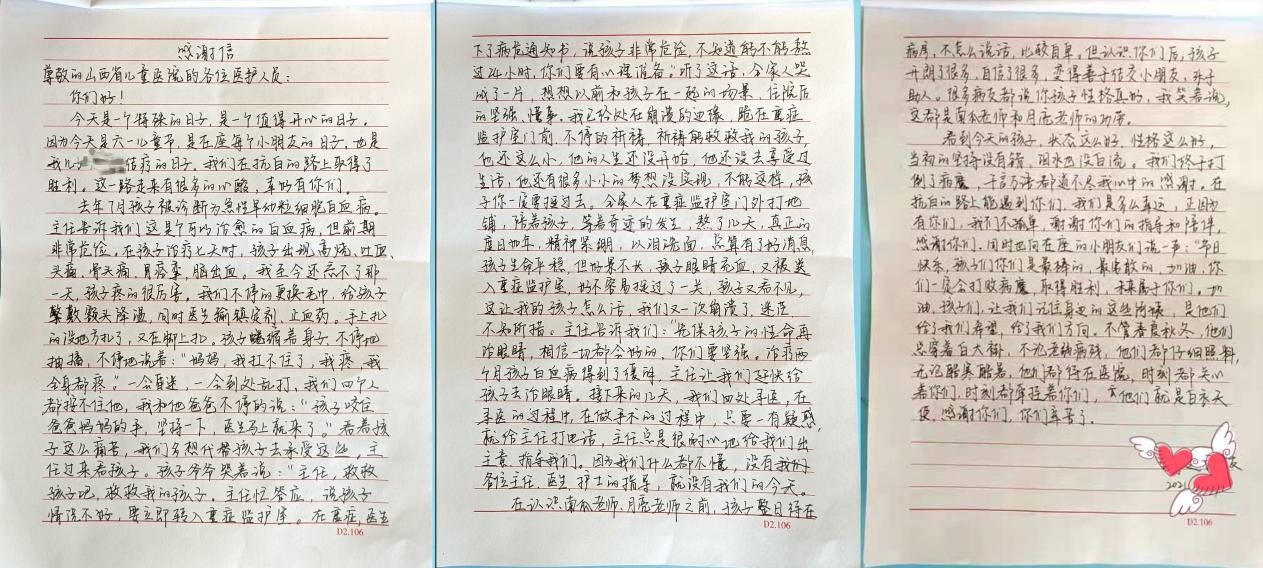 感谢信
尊敬的山西省儿童医院的各位医护人员：
你们好！
今天是个特殊的日子，是一个值得开心的日子。
因为今天是六一儿童节，是在座每个小朋友的日子，也是
我儿 结疗的日子。我们在抗白的路上取得了
胜利，这一路走来有很多的心酸，幸好有你们。
去年7月孩子被诊断为急性早幼粒细胞白血病。
主任告诉我们这是个可以治愈的白血病，但前期
非常危险，在孩子治疗七天时，孩子出现高烧、吐血、
头痛，骨头痛，胃痉挛，脑出血，我至今还忘不了那
一天，孩子疼的很厉害。我们不停的更换毛巾，给孩子
擎敷额头降温，同时医生输镇定剂，止血药。手上扎
的没地方扎了，又在脚上扎，孩子蜷缩着身子，不停地
抽搐，不停地说着：“妈妈，我扛不住了，我疼，我
全身都疼。”一会昏迷，一会到处乱打，我们四个人
都按不住他，我和他爸爸不停的说：“孩子咬住
爸爸妈妈的手，坚持一下，医生马上就来了。”看着孩
子这么痛苦，我们多想代替孩子去承受这些，主
任过来看孩子。孩子爷爷哭着说：“主任，救救
孩子吧，救救我的孩子。主任忙答应，说孩子
情况不好，要立即转入重症监护室。在重症，医生
D2.106
下了病危通知书，说孩子非常危险，不知道能不能熬
过24小时，你们要有心理准备。”听了这话，全家人哭
成了一片，想想以前和孩子在一起的场景，住院后
的坚强、懂事。我已经处在崩溃的边缘，跪在重症
监护室门前，不停的祈祷，祈祷能救救我的孩子，
他还这么小，他的人生还没开始，他还没去享受过
生活，他还有很多小小的梦想没实现，不能这样，孩
子你一定要挺过去。全家人在重症监护室门外打地
铺，陪着孩子，等着奇迹的发生，熬了几天，真正的
度日如年，精神崩溃，以泪洗面，总算有了好消息，
孩子生命平稳，但好景不长，孩子眼睛充血，又被送
入重症监护室，好不容易挺过了一关，孩子又看不见，
这让我的孩子怎么活，我们又一次崩溃了，迷茫
不知所措。主任告诉我们：“先保孩子的性命再
治眼睛，相信一切都会好的，你们要坚强。治疗两
个月孩子白血病得到了缓解，主任让我们赶快给
孩子去治眼睛。接下来的几天，我们四处寻医，在
寻医的过程中，在做手术的过程中，只要一有疑惑，
就给主任打电话，主任总是很耐心地给我们出
主意，指导我们。因为我们什么都不懂，没有我们
各位主任、医生、护士的指导，就没有我们的今天。
在认识南瓜老师、月亮老师之前，孩子整日待在
D2.106
病房，不怎么说话，比较自卑。但认识你们后，孩子
开朗了很多，自信了很多，变得善于结交小朋友，乐于
助人。很多病友都说你孩子性格真好，我笑着说，
这都是南瓜老师和月亮老师的功劳。
看到今天的孩子，状态这么好，性格这么好，
当初的坚持没有错，泪水也没白流，我们终于打
倒了病魔，千言万语都道不尽我心中的感谢。在
抗白的路上能遇到你们，我们是多么幸运，正因为
有你们，我们不孤单，谢谢你们的指导和陪伴，
感谢你们，同时也向在座的小朋友们说一声：“节日
快乐，孩子们你们是最棒的，最勇敢的，加油，你
们一定会打败病魔，取得胜利，未来属于你们，加
油，孩子们，让我们记住身边的这些，是他们
给了我们希望，给了我们方向。不管春夏秋冬，他们
总穿着白大褂，不论老弱病残，他们都仔细照料，
无论酷暑酷暑，他们都待在医院，时刻都关心
着你们，时刻都牵挂着你们，他们就是白衣天
使。感谢你们，你们辛苦了。
2021
D2.106